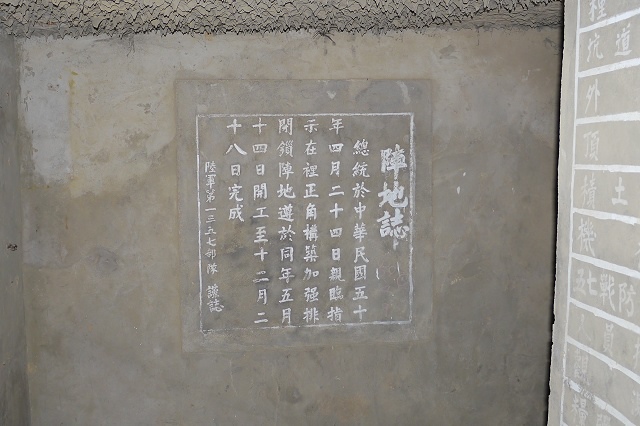 陣地誌
總統於中華民國五十
年四月二十四日親臨指
示在裡正角構築加强排
閉鎖陣地遵於同年五月
十四日開工至十二月二
十八日完成
陸軍第一三五七部隊 謹誌
種坑道
外
頂土
積
機
五七戰防
員
觀